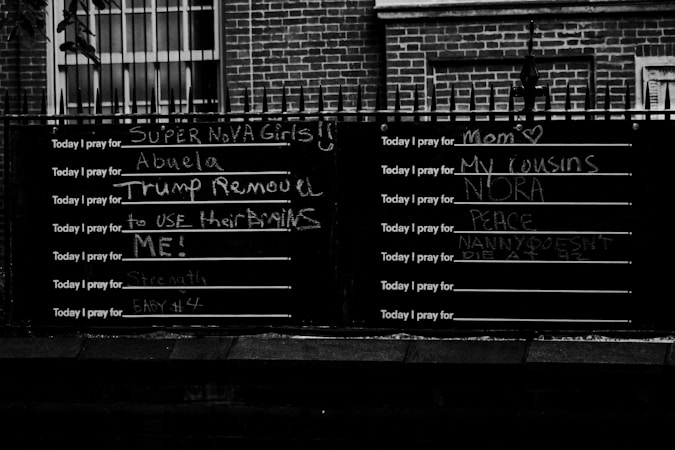 Today I pray for SUPER NOVA Girls!!
Today I pray for Abuela
Today I pray for Trump Removel
Today I pray for to USE their BRAINS
Today I pray for ME!
Today I pray for Strength
Today I pray for BABY #4
Today I pray for Mom
Today I pray for My cousins
Today I pray for NORA
Today I pray for PEACE
Today I pray for NANNY DOESN'T
DIE AT 92
Today I pray for
Today I pray for